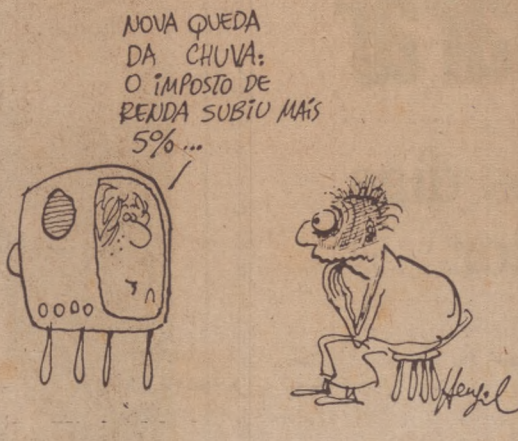 NOVA QUEDA
DA CHUVA:
O IMPOSTO DE
RENDA SUBIU MAIS
5%...
Henfil